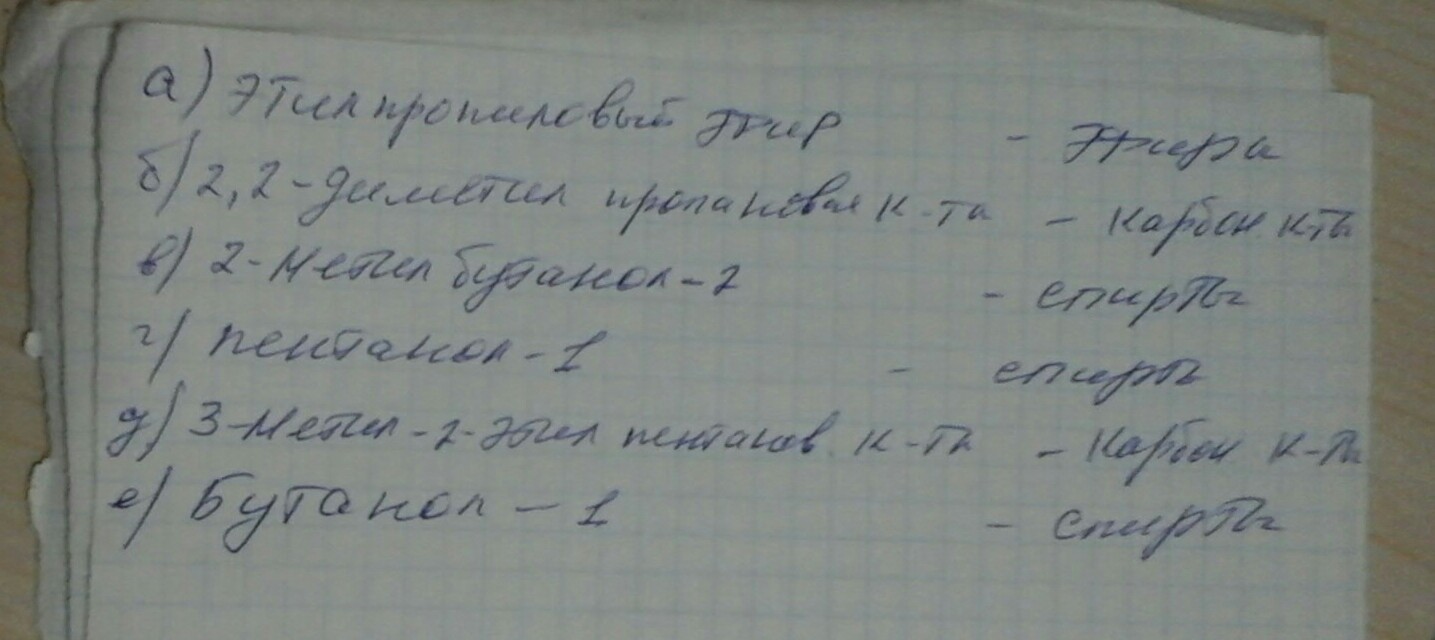 а) Этилпропиловый эфир - эфиры
б) 2,2-диметил пропановая к-та - карбон. к-ты
в) 2-Метил бутанол-2 - спирты
г) пентанол-1 - спирты
д) 3-Метил-2-этил пентанов. к-та - карбон к-ты
е) Бутанол-1 - спирты